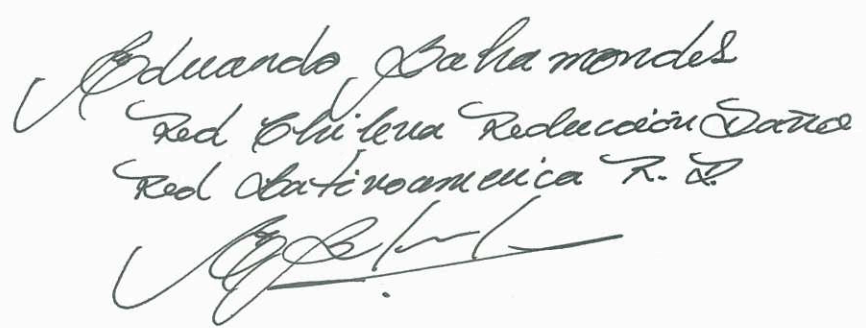 Eduardo Bahamondes
Red Chilena Reducción Daños
Red Latinoamerica R. D.